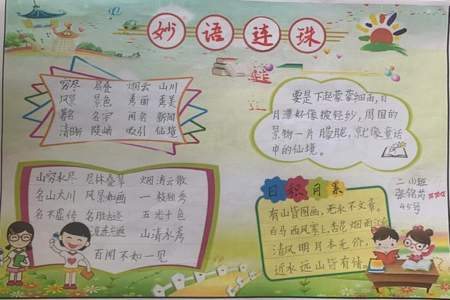 妙语连珠
穷尽 层叠 烟云 山川
风景 景色 秀丽 秀美
著名 名字 闻名 新闻
清晰 陡峭 吸引 仙境
要是下起蒙蒙细雨,日
月潭好像披轻纱,周围的
景物一片朦胧,就像童话
中的仙境。
山穷水尽 层林叠翠 烟消云散
名山大川 风景如画 一枝独秀
名不虚传 名胜古迹 五光十色
山清水秀
百闻不如一见
日积月累
有山皆图画,无水不文章。
清风明月本无价,
近水远山皆有情。
45号